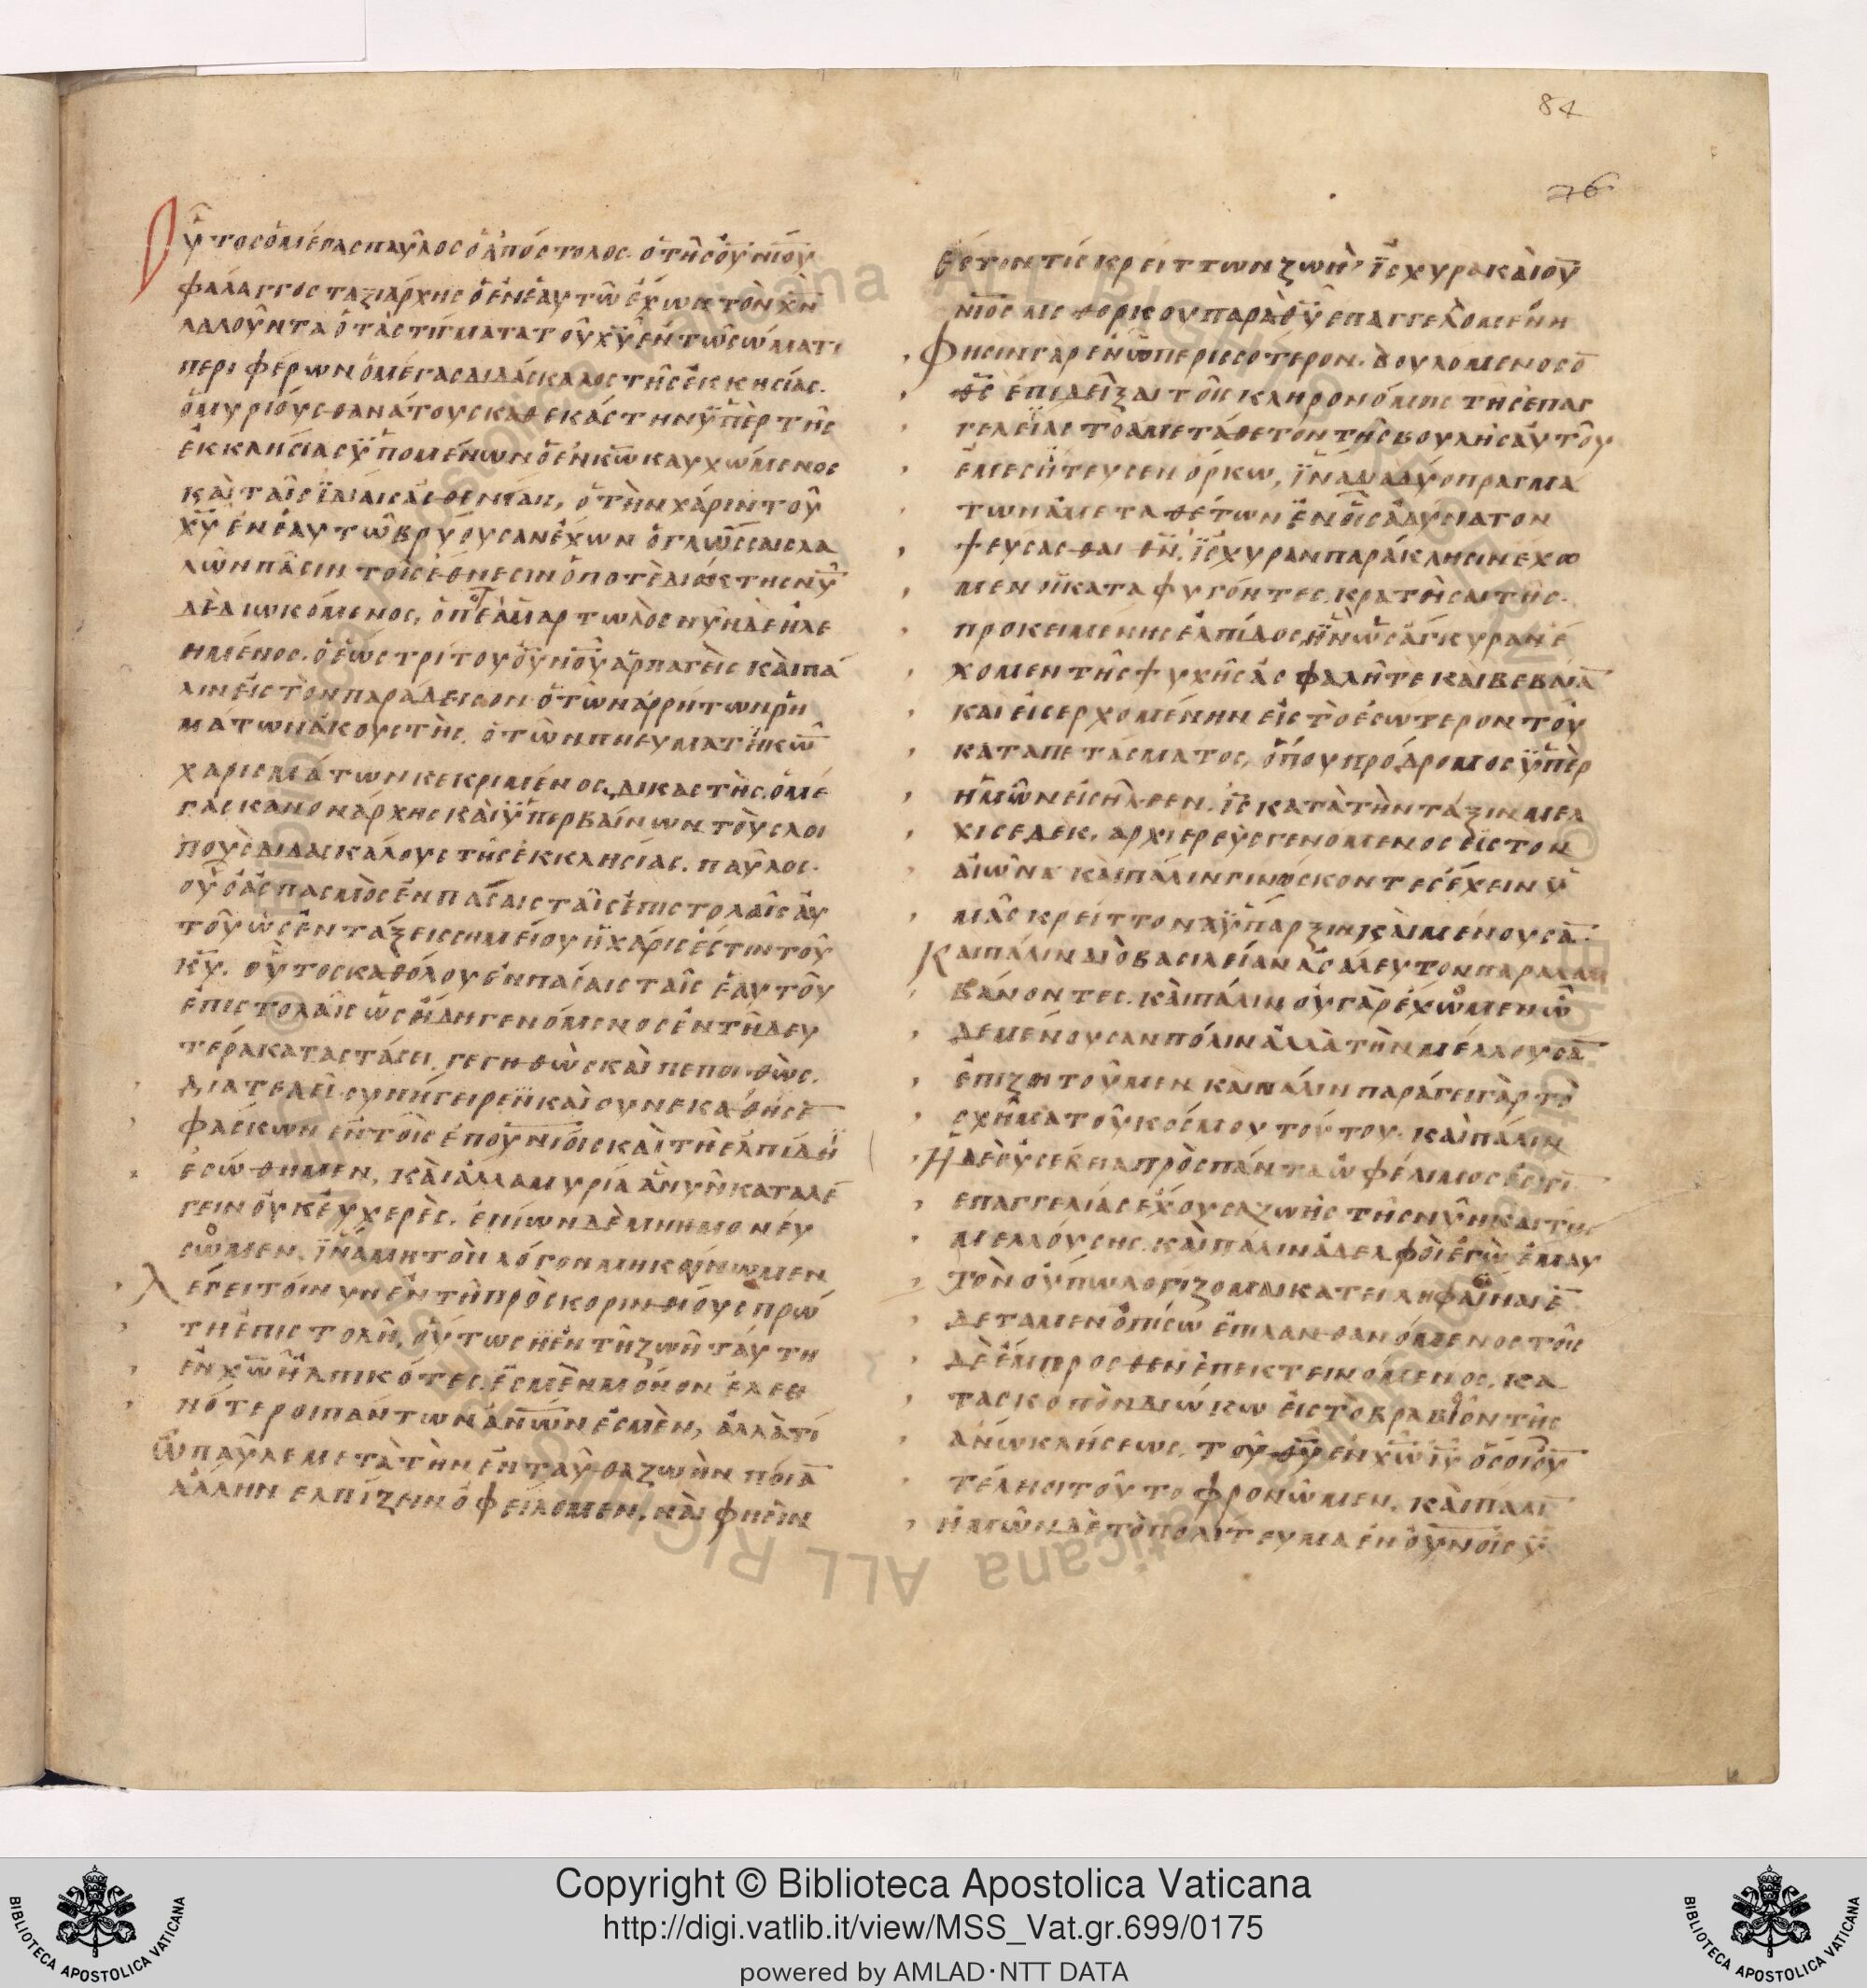 84
76
Οὗτος ὁ μέγας παῦλος ὁ ἀπόστολος· ὁ τῆς οὐνίου
φάλαγγος ταξιάρχης ὁ ἐν ἑαυτῶ ἔχων τὸν χν
λαλοῦντα ὁ τὰ στίγματα τοῦ χυ ἐν τῶ σώματι
περιφέρων ὁ μέγας διδάσκαλος τῆς ἐκκησίας·
ὁ μυρίους θανάτους καθ εκάστην ὑπὲρ τῆς
ἐκκλησίας ὑπομένων ὁ ἐν κω καυχώμενος
καὶ ταῖς ϊδίαις ἀσθενίαις, ὁ τὴν χάριν τοῦ
χυ ἐν ἑαυτῶ βρύουσαν ἔχων ὁ γλώσσαις λα
λῶν πᾶσιν τοῖς ἔθνεσιν ὁ ποτὲ διώκτης νυ
δὲ διωκόμενος, ὁ ποτε ἁμαρτωλὸς νῦν δὲ ἠλε
ημένος· ὁ ἕως τρίτου οὐνου ἁρπαγεὶς καὶ πά
λιν εἰς τὸν παράδεισον ὁ τῶν ἀρρήτων ρη
μάτων ἀκουστής. ὁ τῶν πνευματικῶ
χαρισμάτων κεκριμένος δικαστής. ὁ μέ
γας κανονάρχης καὶ ὑπερβαίνων τοὺς λοι
ποὺς διδασκάλους τῆς ἐκκλησίας. παῦλος·
οὗ ὁ ἀσπασμὸς ἐν πάσαις ταῖς ἐπιστολαῖς αυ
τοῦ ὡς ἐν τάξει σημείου ἡ χάρις ἐστιν τοῦ
κυ. οὗτος καθόλου ἐν πάσαις ταῖς ἑαυτοῦ
ἐπιστολαῖς ὡς ἤδη γενόμενος ἐν τῆ δευ
τέρα καταστάσει. γεγηθὼς καὶ πεποιθὼς.
διατελεῖ· συνήγειρεν καὶ συνεκάθισε
φάσκων ἐν τοῖς ἐπουνίοις καὶ τῆ ἐλπίδι
ἐσώθημεν, καὶ ἄλλα μυρία ἃ νῦν καταλέ
γειν οὐκ εὐχερὲς. ἐπίων δὲ μνημονεύ
σωμεν. ἵνα μη τὸν λόγον μηκύνωμεν
Λέγει τοίνυν ἐν τῆ πρὸς κορινθίους πρώ
τη ἐπιστολῆ, οὕτως ἢ ἐν τῆ ζωῆ ταύτη
ἐν χω ἠλπικότες ἐσμὲν μόνον ἐλεει
νότεροι πάντων ἀνων ἐσμὲν, ἀλλὰ τί
ὦ παῦλε μετὰ τὴν ἐνταῦθα ζωὴν ποίᾱ
ἄλλην ελπίζειν ὀφείλομεν, καὶ φησὶν
ἔστον τίς κρείττων ζωὴ ϊσχυρα καὶ οὐ
νιος μεθορκου παρὰ θυ επαγγελομένη
Φησιν γὰρ ἐν ὧ περισσοτερον. βουλομενος ὁ
θς ἐπιδεῖξαι τοῖς κληρονόμοις τῆς ἐπαγ
γελείας το αμετάθετον τῆς βουλῆς αὐτοῦ
ἐμεσίτευσεν ὅρκω, ἵνα δια δύο πραγμα
των ἀμεταθέτων ἐν οἷς ἀδύνατον
ψευσασθαι θν, ἰσχυραν παράκλησιν ἔχω
μεν οἱ καταφυγόντες. κρατῆσαι τῆς
προκειμένης ἐλπίδος ἣν ὡς ἄγκυραν ἔ
χομεν τῆς ψυχῆς ἀσφαλῆ τε καὶ βεβαίᾱ
καὶ εἰσερχομένην εἰς τὸ ἐσώτερον τοῦ
καταπετάσματος, ὅπου πρόδρομος ὑπὲρ
ἡμῶν εἰσῆλθεν. ις κατὰ τὴν τάξιν μελ
χισεδεκ, αρχιερεὺς γενομενος εἰς τὸν
αἰῶνα καὶ πάλιν γινώσκοντες ἔχειν ὑ
μᾶς κρείττονα ὕπαρξιν καὶ μένουσᾱ·
Καὶ πάλιν διὸ βασιλείαν ἀσάλευτον παραλαμ
βάνοντες. καὶ πάλιν οὐ γὰρ ἔχωμεν ὧ
δε μένουσαν πόλιν ἀλλὰ τὴν μέλλουσᾱ
ἐπιζητοῦμεν. καὶ πάλιν παράγει γὰρ τὸ
σχῆμα τοῦ κόσμου τούτου. καὶ πάλιν
Η δὲ εὐσέβεια πρὸς πάντα ὠφέλιμος ἐστι
ἐπαγγελίας ἔχουσα ζωῆς τῆς νῦν καὶ τῆς
μελλούσης. καὶ πάλιν ἀδελφοὶ ἐγὼ ἐμαυ
τὸν οὔπω λογίζομαι κατειληφέναι ἓ
δε τὰ μεν ὀπίσω ἐπιλανθανόμενος τοῖς
δὲ ἔμπροσθεν ἐπεκτεινόμενος. κα
τα σκοπὸν διώκω εἰς τὸ βραβῖον τῆς
ἄνω κλήσεως. τοῦ θυ ἐν χω ιυ ὅσοι οὐ
τέλειοι τοῦτο φρονῶμεν. καὶ πάλι
ἡμῶν δὲ τὸ πολίτευμα ἐν οὐνοῖς ὑ
Copyright © Biblioteca Apostolica Vaticana
http://digi.vatlib.it/view/MSS_Vat.gr.699/0175
powered by AMLAD·NTT DATA
BIBLIOTECA APOSTOLICA VATICANA
BIBLIOTECA APOSTOLICA VATICANA